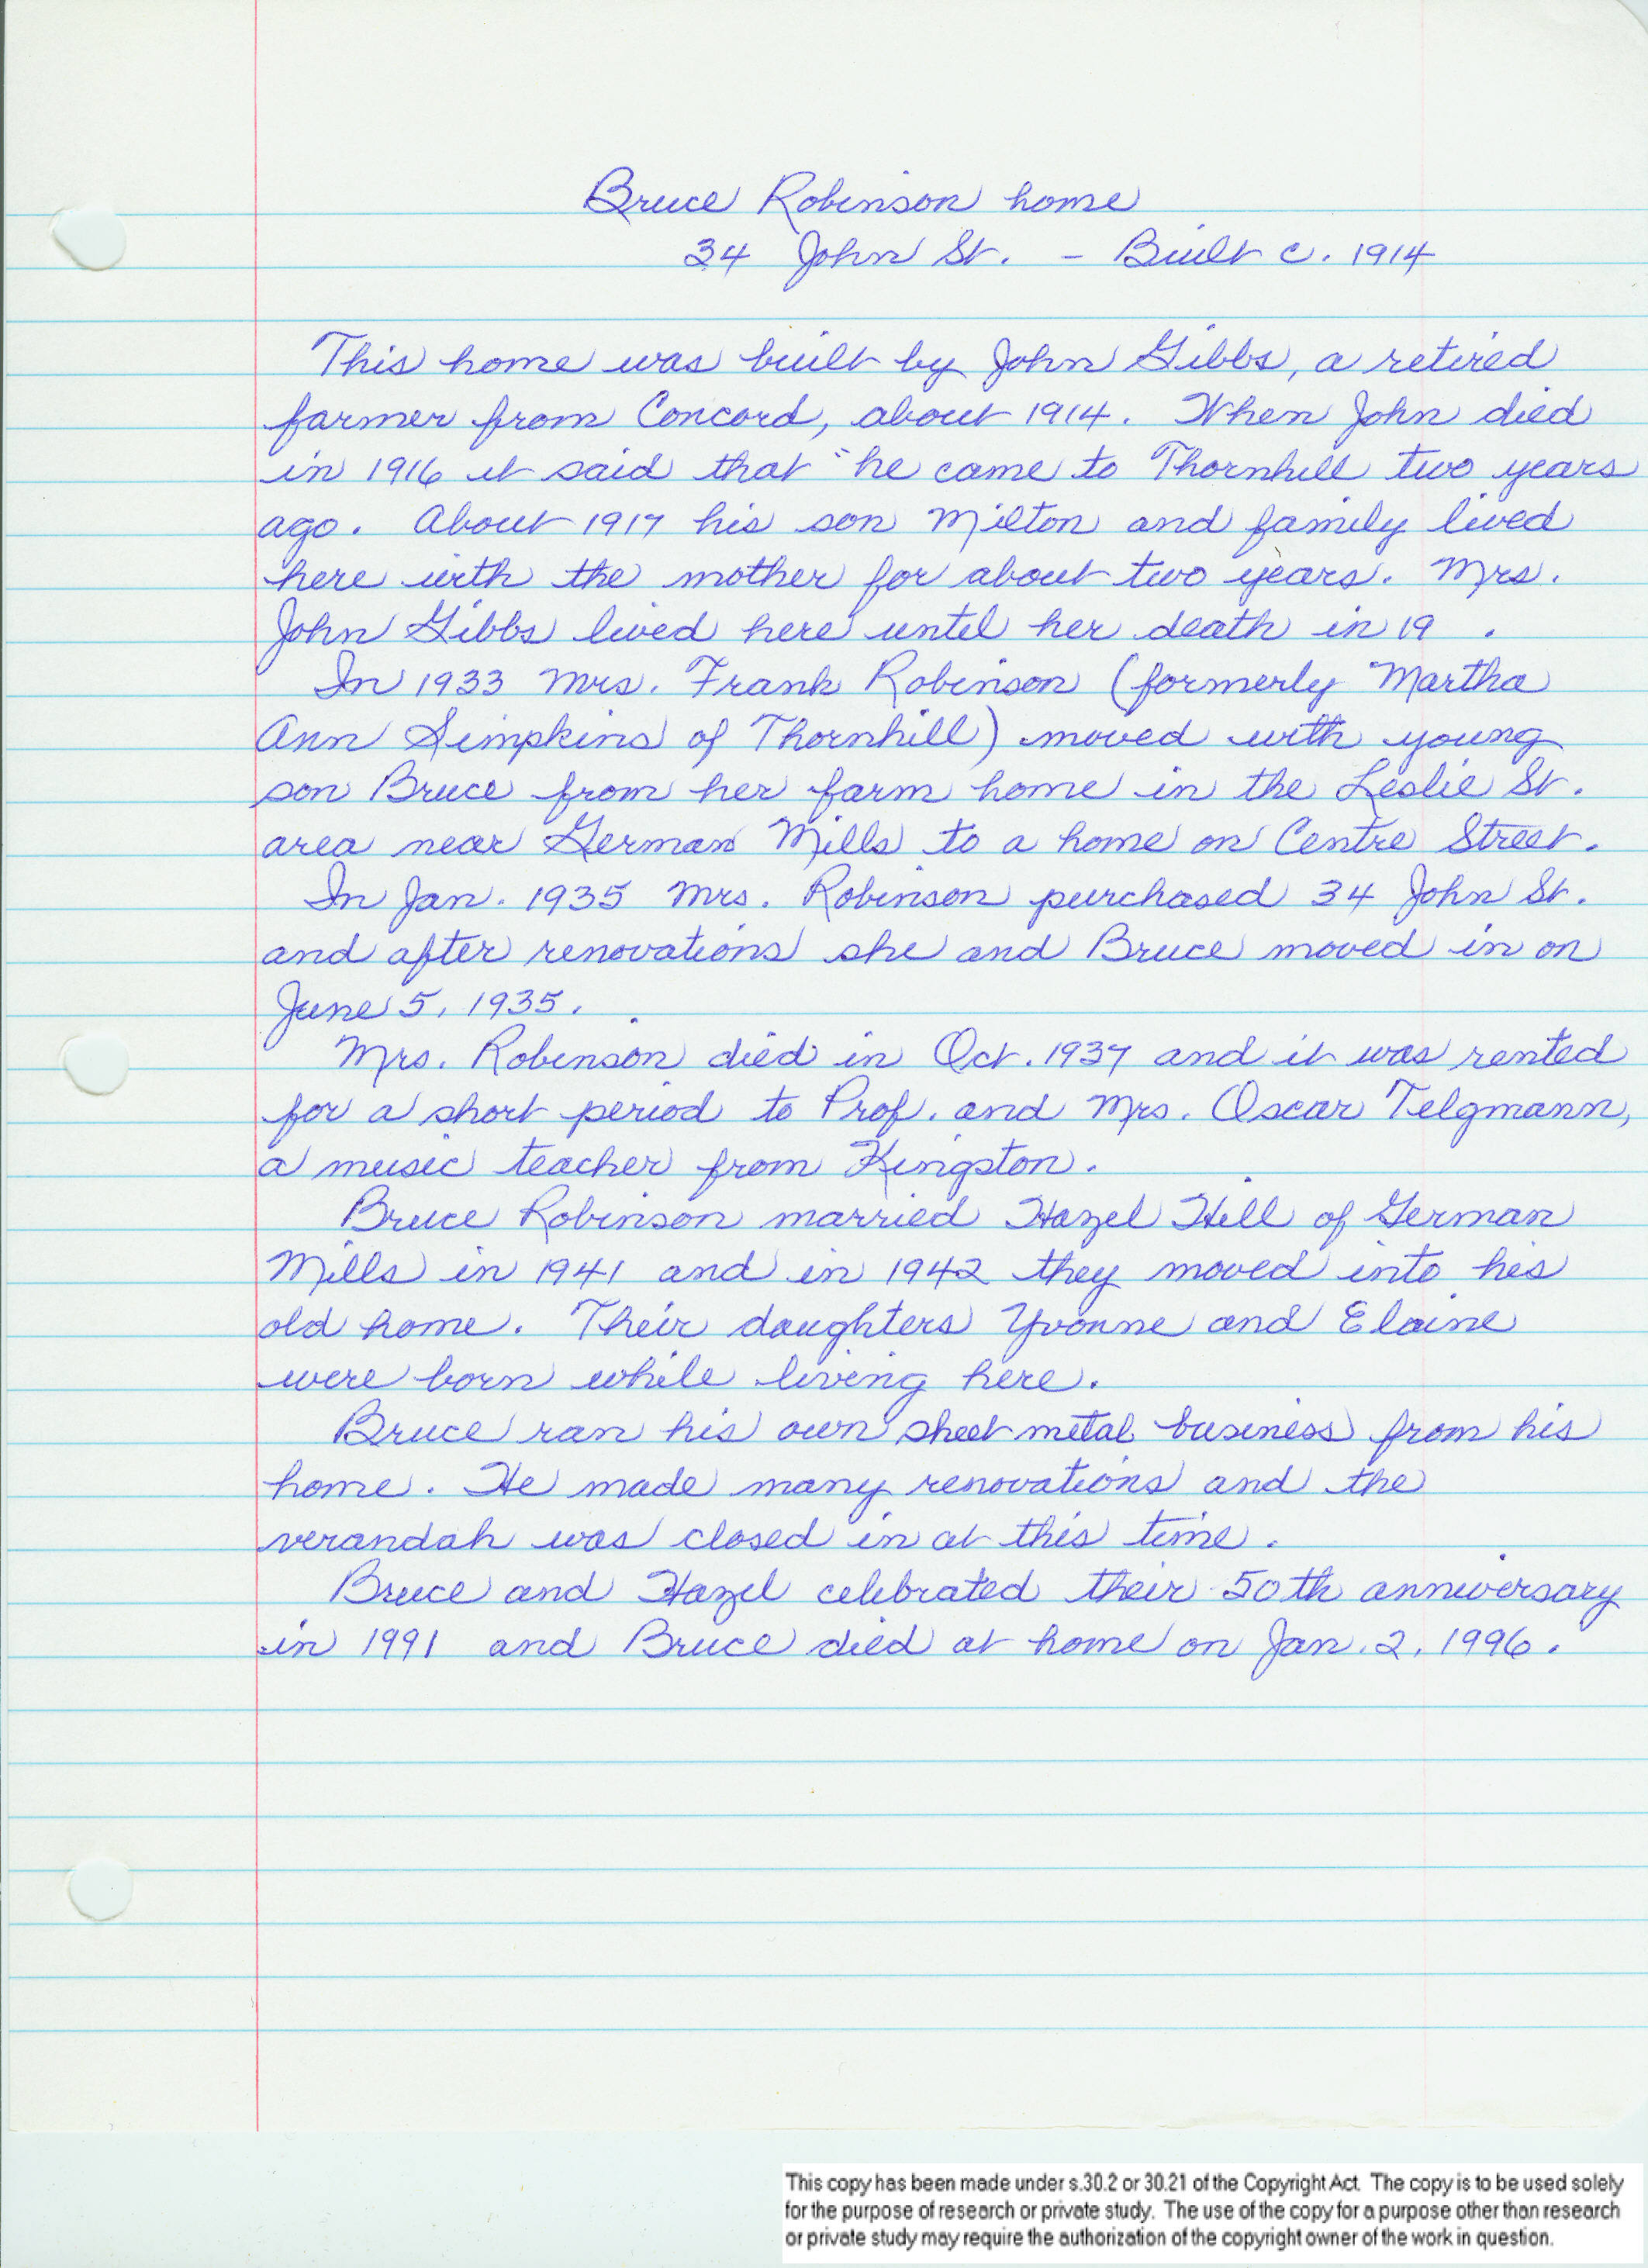 Bruce Robinson home
34 John St. - Built c. 1914
This home was built by John Gibbs, a retired
farmer from Concord, about 1914. When John died
in 1916 it said that "he came to Thornhill two years
ago. About 1917 his son Milton and family lived
here with the mother for about two years. Mrs.
John Gibbs lived here until her death in 19   .
In 1933 Mrs. Frank Robinson (formerly Martha
Ann Simpkins of Thornhill) moved with young
son Bruce from her farm home in the Leslie St.
area near German Mills to a home on Centre Street.
In Jan. 1935 Mrs. Robinson purchased 34 John St.
and after renovations she and Bruce moved in on
June 5, 1935.
Mrs. Robinson died in Oct. 1937 and it was rented
for a short period to Prof. and Mrs. Oscar Telgmann,
a music teacher from Kingston.
Bruce Robinson married Hazel Hill of German
Mills in 1941 and in 1942 they moved into his
old home. Their daughters Yvonne and Elaine
were born while living here.
Bruce ran his own sheet metal business from his
home. He made many renovations and the
verandah was closed in at this time.
Bruce and Hazel celebrated their 50th anniversary
in 1991 and Bruce died at home on Jan. 2, 1996.
This copy has been made under s.30.2 or 30.21 of the Copyright Act. The copy is to be used solely
for the purpose of research or private study. The use of the copy for a purpose other than research
or private study may require the authorization of the copyright owner of the work in question.